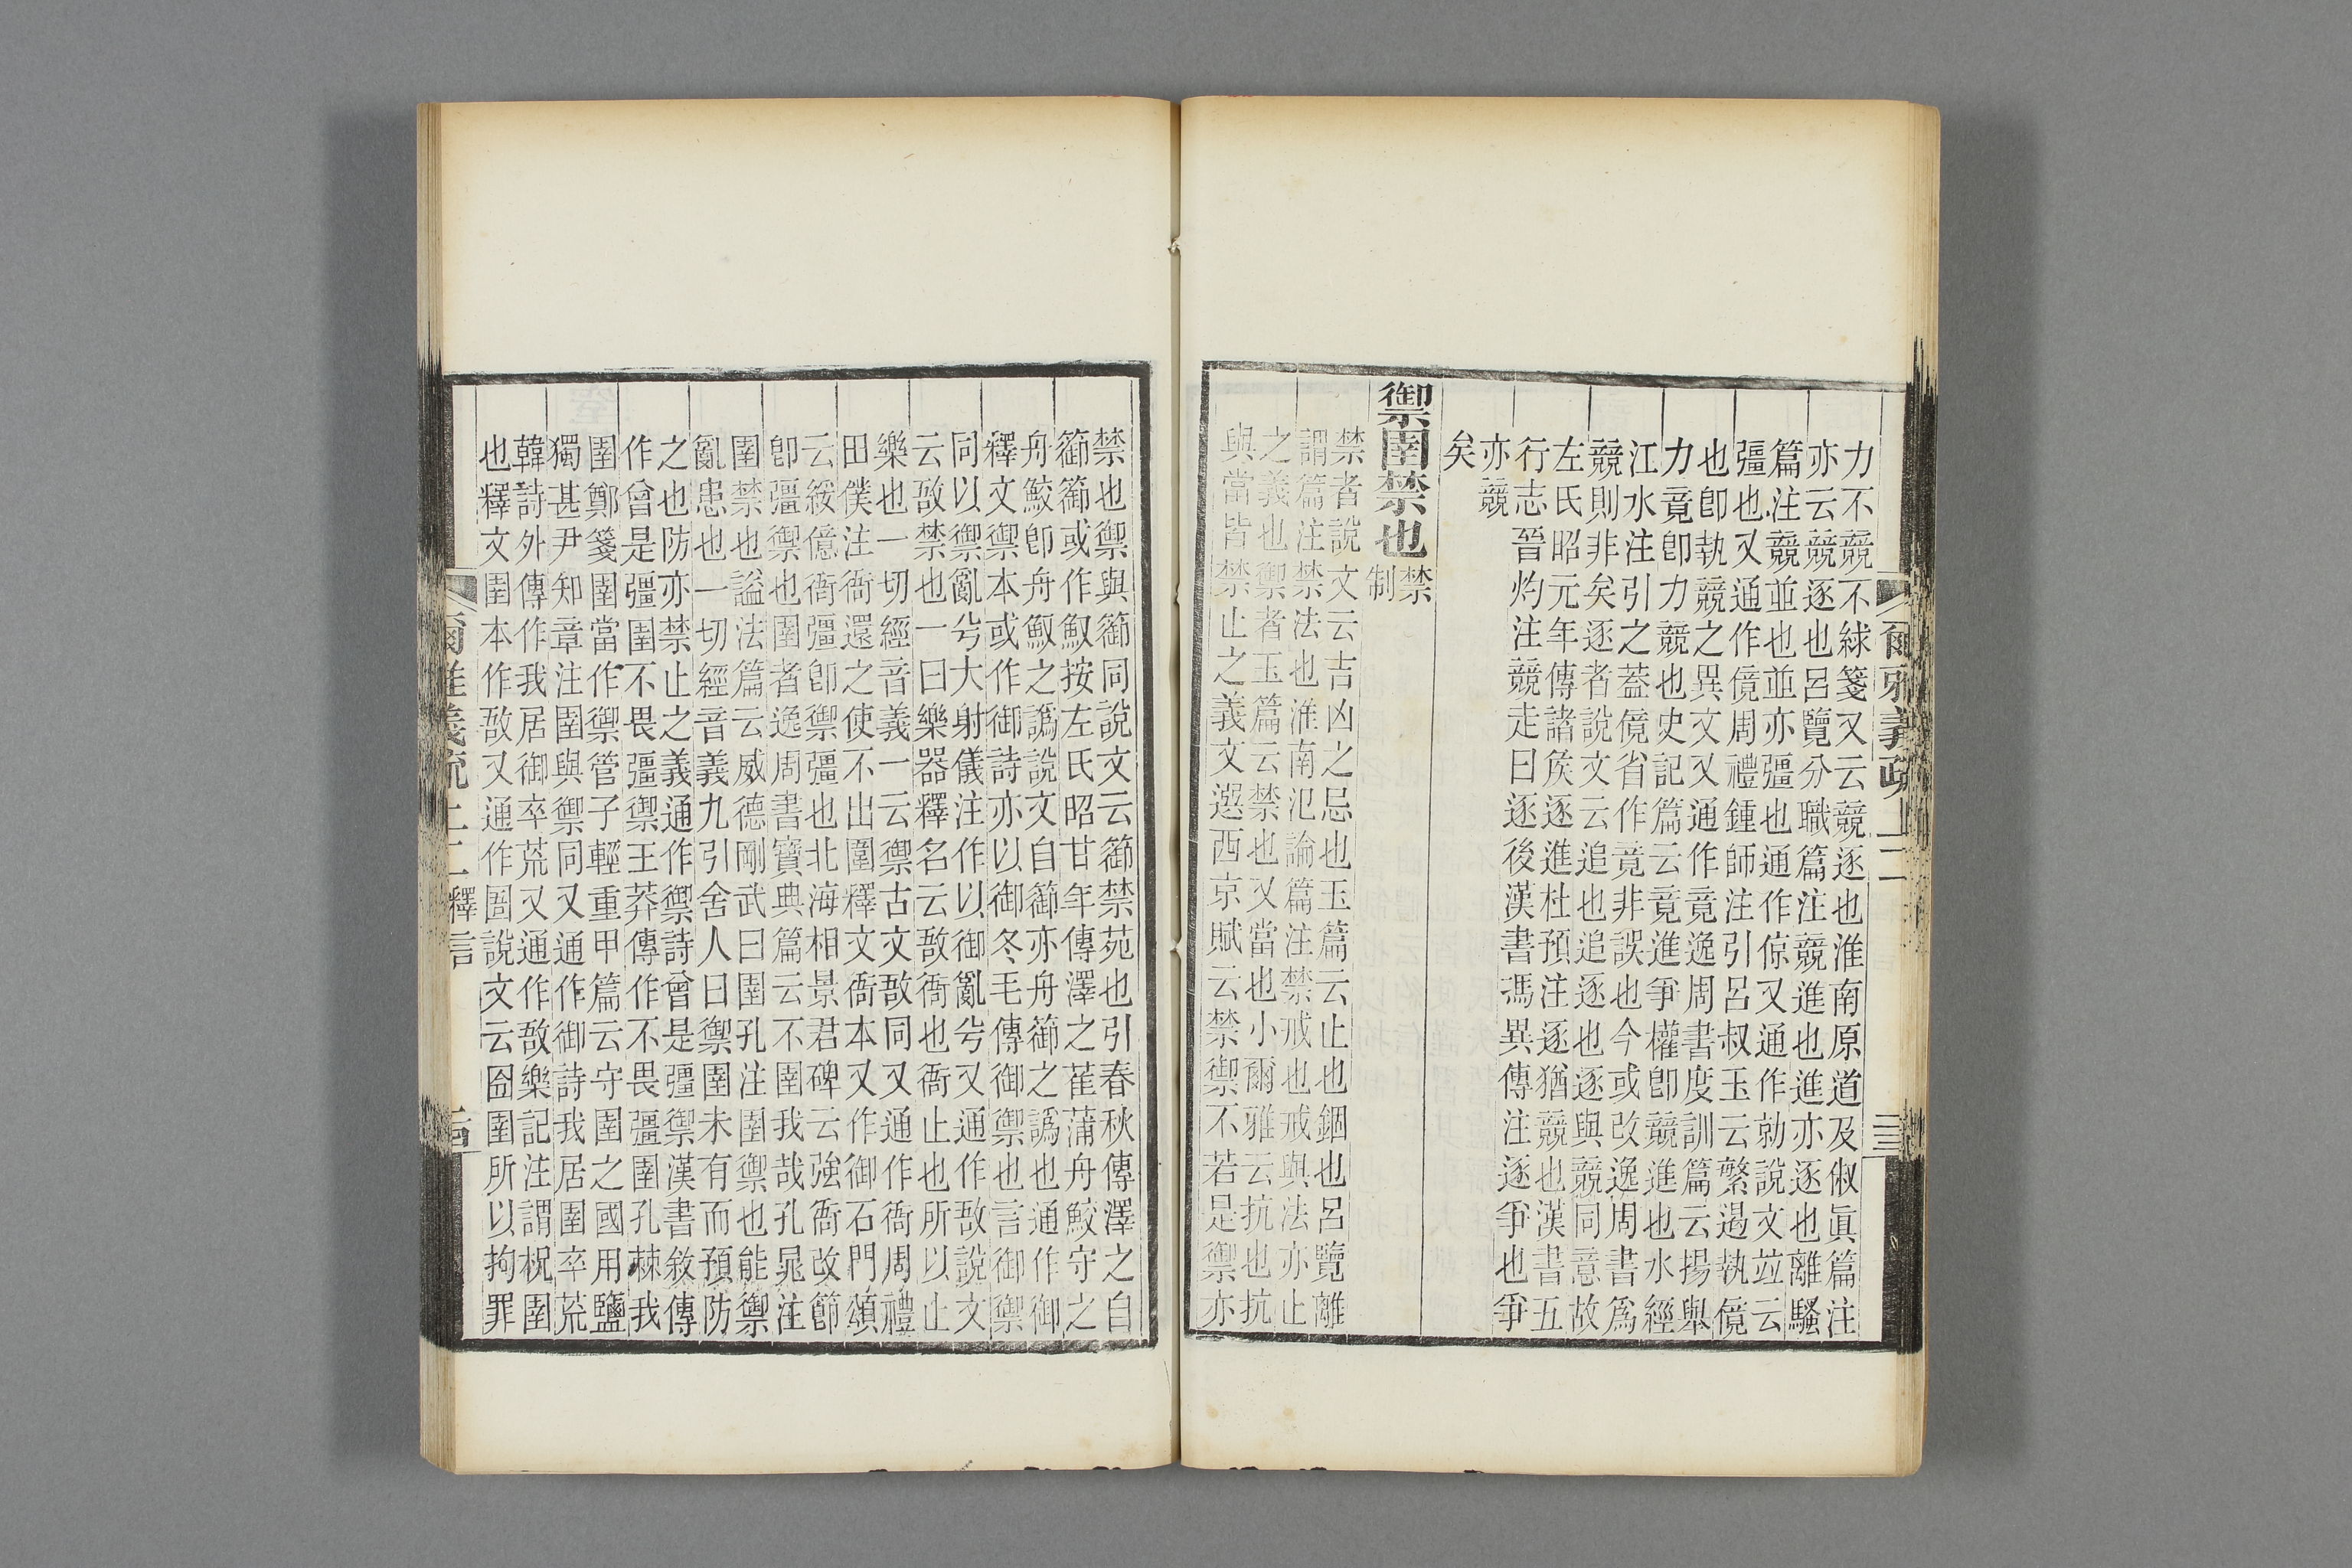 爾雅義疏上二
力不競不絿箋又云競逐也淮南原道及俶眞篇注
亦云競逐也呂覽分職篇注競進也進亦逐也離騷
篇注競並也並亦彊也通作倞又通作勍說文竝云
彊也又通作傹周禮鍾師注引呂叔玉云繁遏執傹
也卽執競之異文又通作竟逸周書度訓篇云揚舉
力竟卽力競也史記篇云竟進爭權卽競進也水經
江水注引之蓋傹省作竟非誤也今或改逸周書爲
競則非矣逐者說文云追也追逐也逐與競同意故
左氏昭元年傳諸矦逐進杜預注逐猶競也漢書五
行志晉灼注競走曰逐後漢書馮異傳注逐爭也爭
亦競
矣
禦圉禁也
禁
制
禁者說文云吉凶之忌也玉篇云止也錮也呂覽離
謂篇注禁法也淮南氾論篇注禁戒也戒與法亦止
之義也禦者玉篇云禁也又當也小爾雅云抗也抗
與當皆禁止之義文選西京賦云禁禦不若是禦亦
禁也禦與籞同說文云籞禁苑也引春秋傳澤之自
籞籞或作䱷按左氏昭廿年傳澤之萑蒲舟鮫守之
舟鮫卽舟䱷之譌說文自籞亦舟籞之譌也通作御
釋文禦本或作御詩亦以御冬毛傳御禦也言御禦
同以禦亂兮大射儀注作以御亂兮又通作敔說文
云敔禁也一曰樂器釋名云敔衙也衙止也所以止
樂也一切經音義一云禦古文敔同又通作衙周禮
田僕注衙還之使不出圍釋文衙本又作御石門頌
云綏億衙彊卽禦彊也北海相景君碑云強衙改節
卽彊禦也圉者逸周書寶典篇云不圉我哉孔晁注
圉禁也謚法篇云威德剛武曰圉孔注圉禦也能禦
亂患也一切經音義九引舍人曰禦圉未有而預防
之也防亦禁止之義通作禦詩曾是彊禦漢書敘傳
作曾是彊圉不畏彊禦王莽傳作不畏彊圉孔棘我
圉鄭箋圉當作禦管子輕重甲篇云守圉之國用鹽
獨甚尹知章注圉與禦同又通作御詩我居圉卒荒
韓詩外傳作我居御卒荒又通作敔樂記注謂柷圉
也釋文圉本作敔又通作圄說文云囹圉所以拘罪
釋言